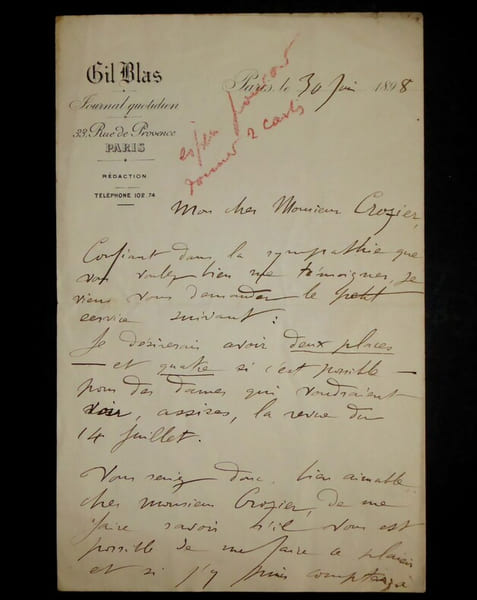 Gil Blas
Journal quotidien
33, Rue de Provence
PARIS
RÉDACTION
TÉLÉPHONE 102.74
Paris, le 30 Juin 1898
donner 2 cartes
Mon cher Monsieur Crozier,
Confiant dans la sympathie que
vous voulez bien me témoigner, je
viens vous demander le petit
service suivant :
Je désirerais avoir deux places
— et quatre si c'est possible —
pour des dames qui voudraient
voir, assises, la revue du
14 Juillet.
Vous seriez donc bien aimable
cher Monsieur Crozier, de me
faire savoir s'il vous est
possible de me faire ce plaisir
et si j'y puis compter